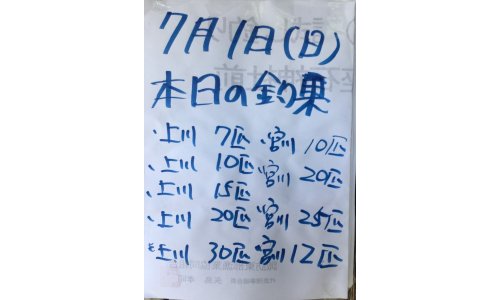 7月1日(日)
本日の釣果
、上川 7匹 、宮川 10匹
、上川 10匹 宮川 20匹
、上川 15匹
、上川 20匹 宮川 25匹
上川 30匹 宮川 12匹